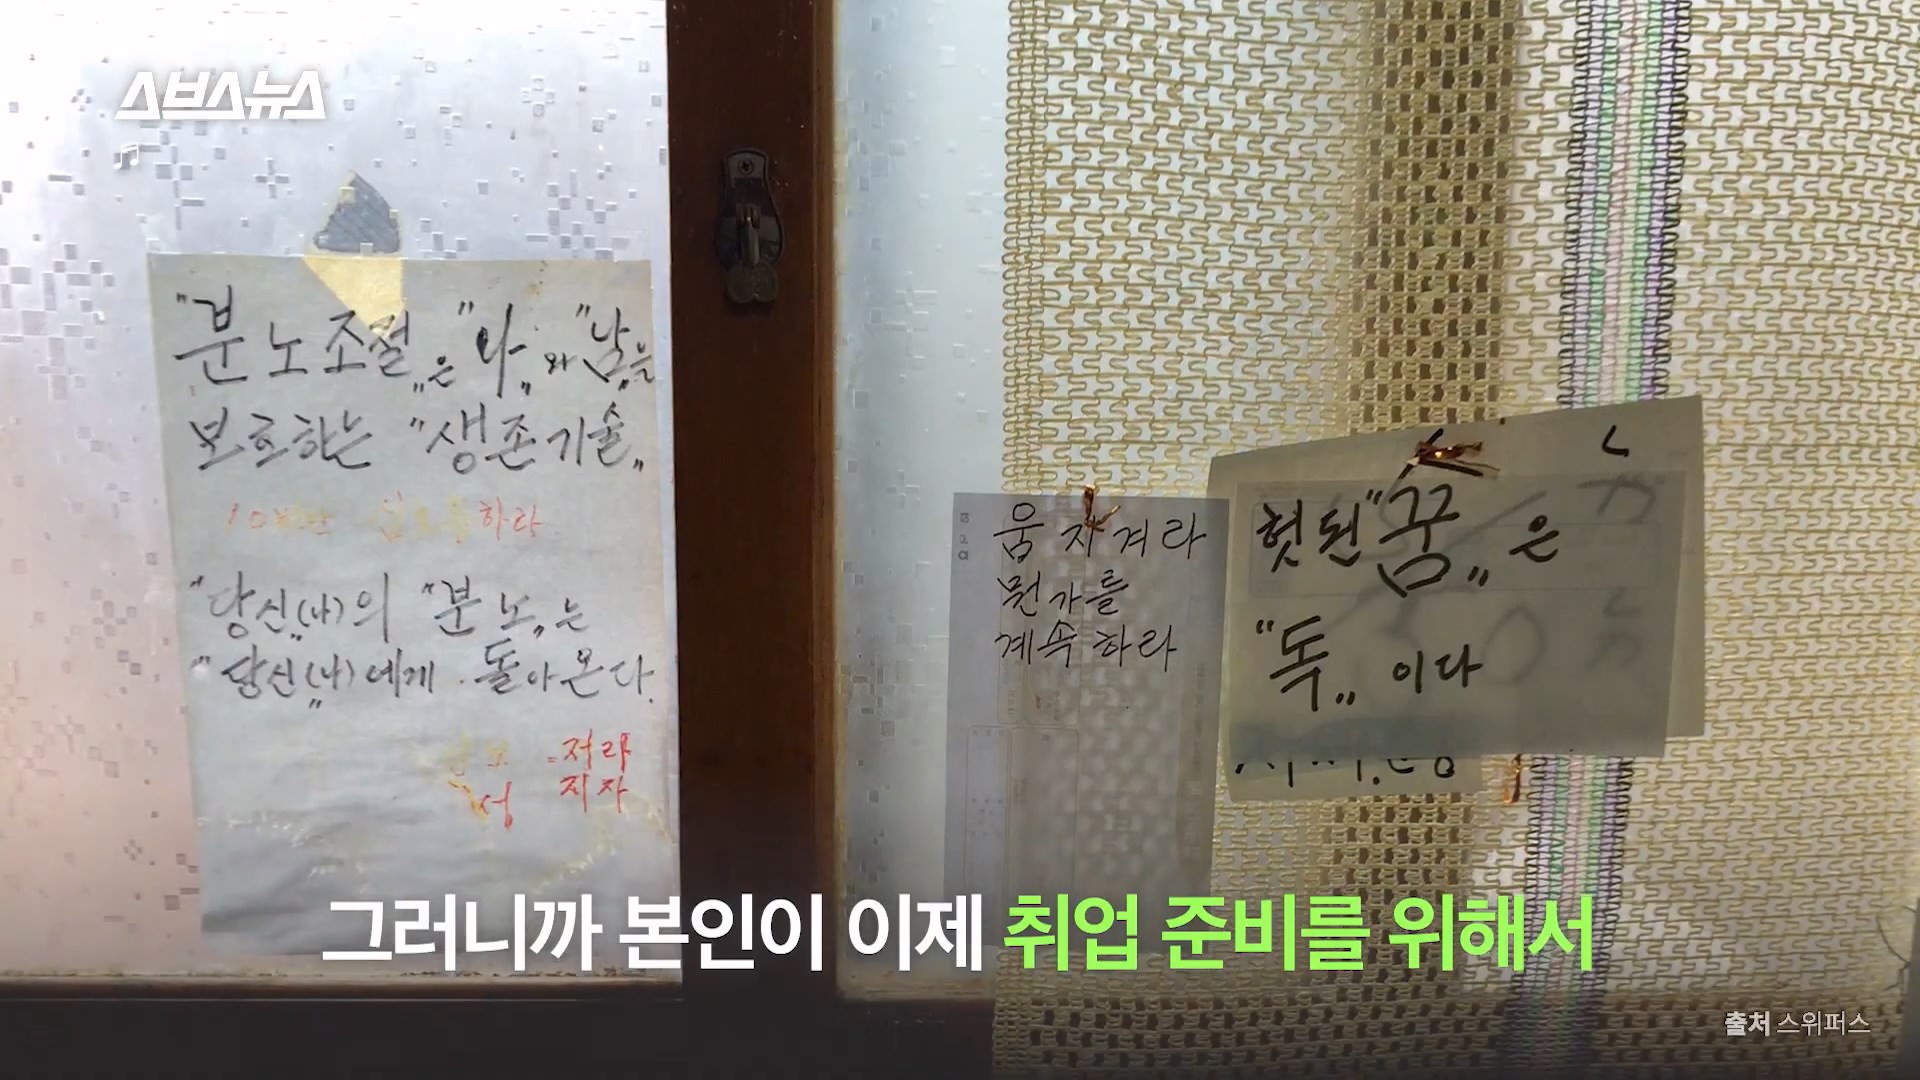 스브스뉴스
"분노조절„은 "나„와 "남„을
보호하는 "생존기술„
하라
"당신„(나)의 "분노„는
"당신„(나)에게 돌아온다.
움지겨라
뭔가를
계속하라
헛된 "꿈„은
"독„이다
그러니까 본인이 이제 취업 준비를 위해서
출처 스위퍼스